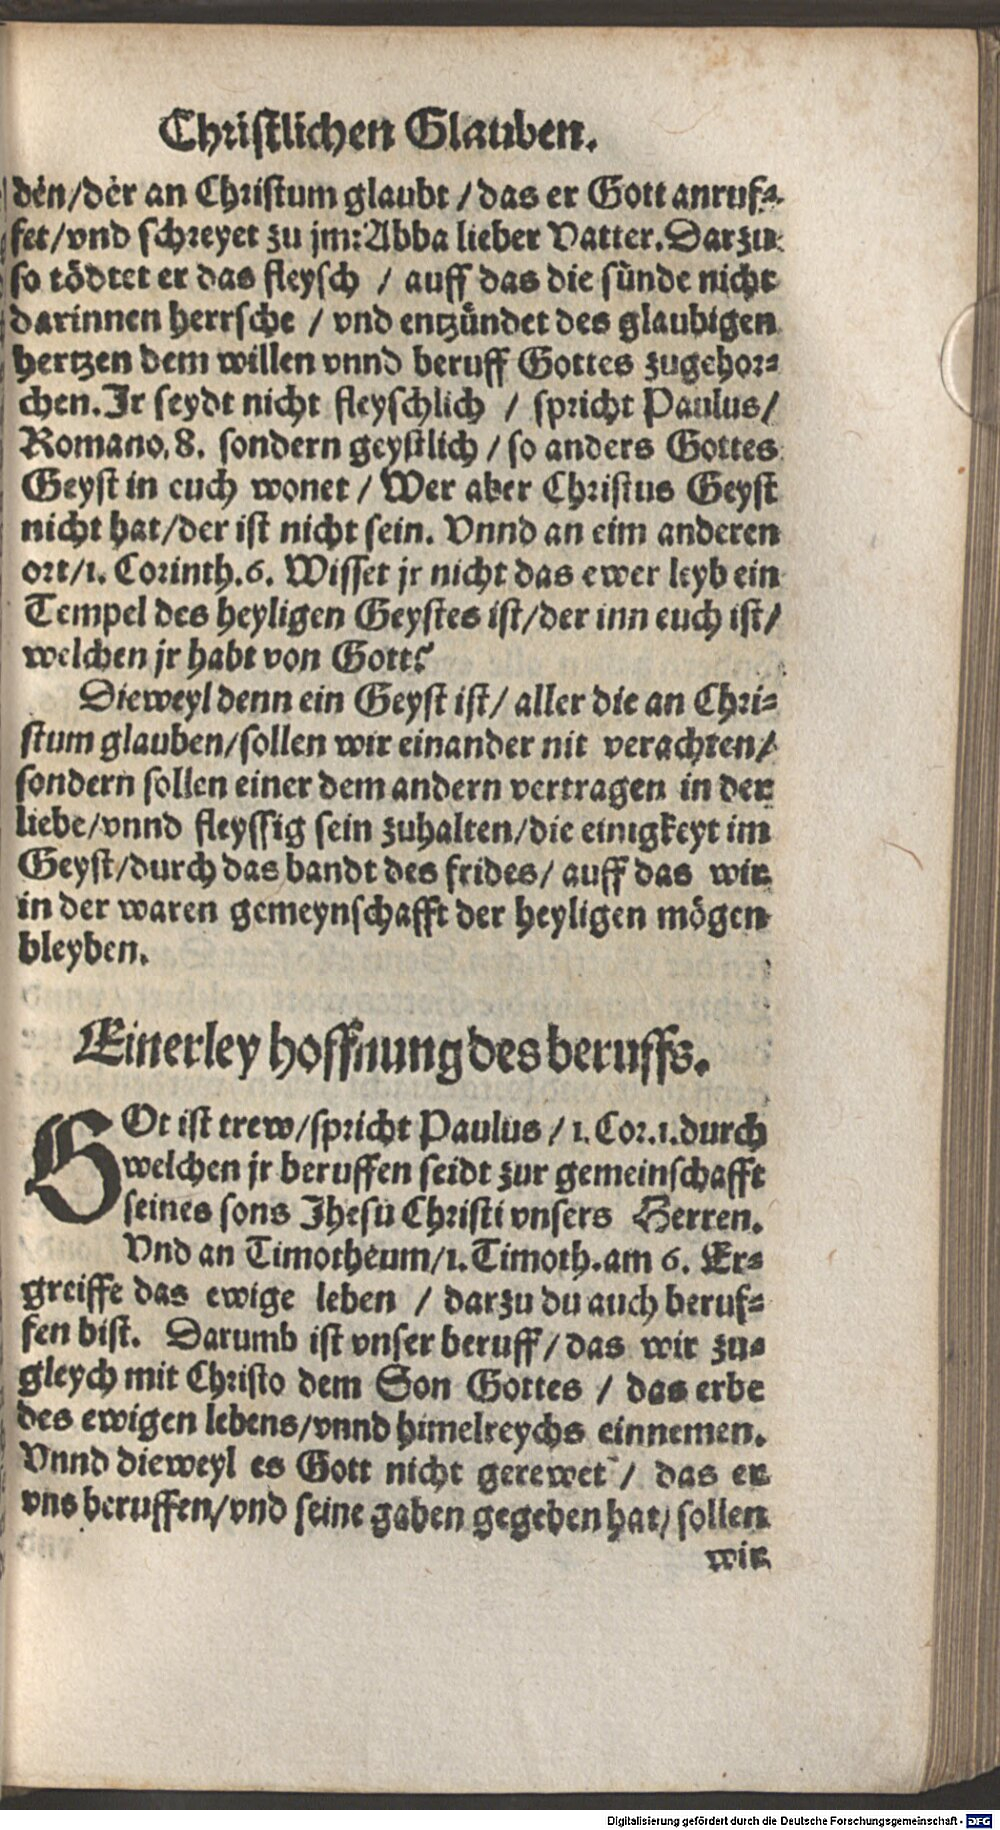 Christlichen Glauben.
den/der an Christum glaubt / das er Gott anruf⸗
fet/vnd schreyet zu jm: Abba lieber Vatter. Darzu
so tödtet er das fleysch / auff das die sünde nicht
darinnen herrsche / vnd entzündet des glaubigen
hertzen dem willen vnnd beruff Gottes zugehor⸗
chen. Ir seydt nicht fleyschlich / spricht Paulus/
Romano. 8. sondern geystlich / so anders Gottes
Geyst in euch wonet / Wer aber Christus Geyst
nicht hat/der ist nicht sein. Vnnd an eim anderen
ort/1. Corinth. 6. Wisset jr nicht das ewer leyb ein
Tempel des heyligen Geystes ist/der inn euch ist/
welchen jr habt von Gott?
Dieweyl denn ein Geyst ist/ aller die an Chri⸗
stum glauben/sollen wir einander nit verachten/
sondern sollen einer dem andern vertragen in der
liebe/vnnd fleyssig sein zuhalten/die einigkeyt im
Geyst/durch das bandt des frides/ auff das wir
in der waren gemeynschafft der heyligen mögen
bleyben.
Einerley hoffnung des beruffs.
GOt ist trew/spricht Paulus / 1. Cor. 1. durch
welchen jr beruffen seidt zur gemeinschafft
seines sons Jhesu Christi vnsers Herren.
Vnd an Timotheum/1. Timoth. am 6. Er⸗
greiffe das ewige leben / darzu du auch beruf⸗
fen bist. Darumb ist vnser beruff/ das wir zu⸗
gleych mit Christo dem Son Gottes / das erbe
des ewigen lebens/vnnd himelreychs einnemen.
Vnnd dieweyl es Gott nicht gerewet / das er
vns beruffen/vnd seine gaben gegeben hat/ sollen
wir
Digitalisierung gefördert durch die Deutsche Forschungsgemeinschaft - DFG